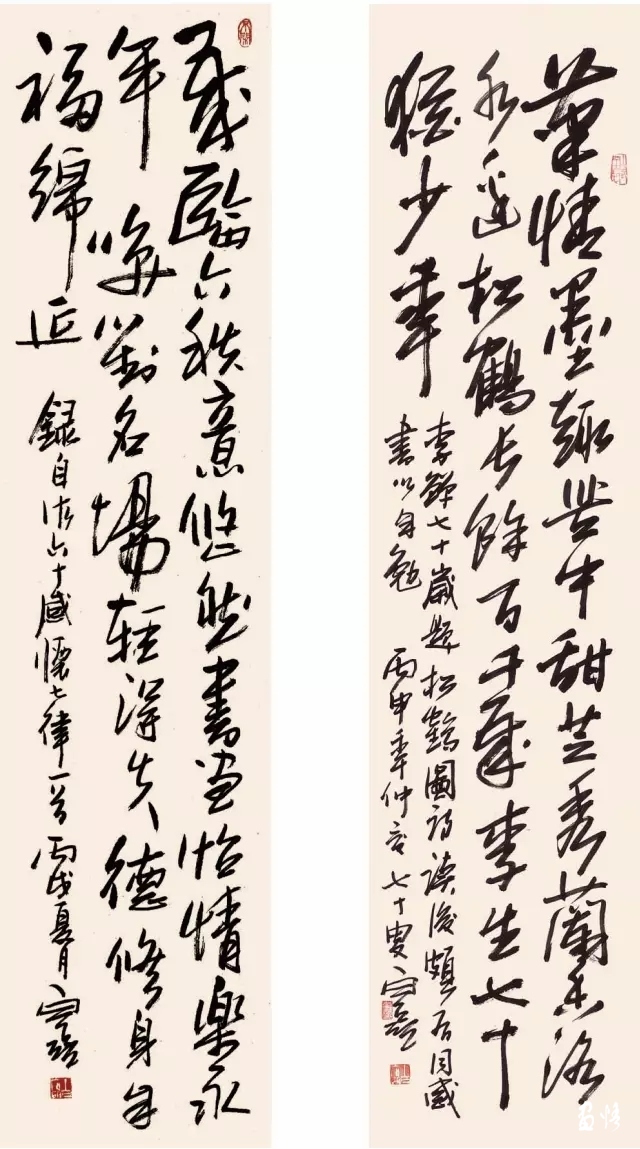 筆情墨趣苦中甜芝秀蘭香洛
水邊松鶴長餘百千歲李生七十
猶少年
李鱓七十歲題松鶴圖詩讀後頗有同感
書以自勉 丙申年仲 七十叟
歲臨六秩意悠然書畫怡情樂永
年 笑對名場輕得失德修身自
福綿延
錄自作六十感懷七律一首 丙戌夏月